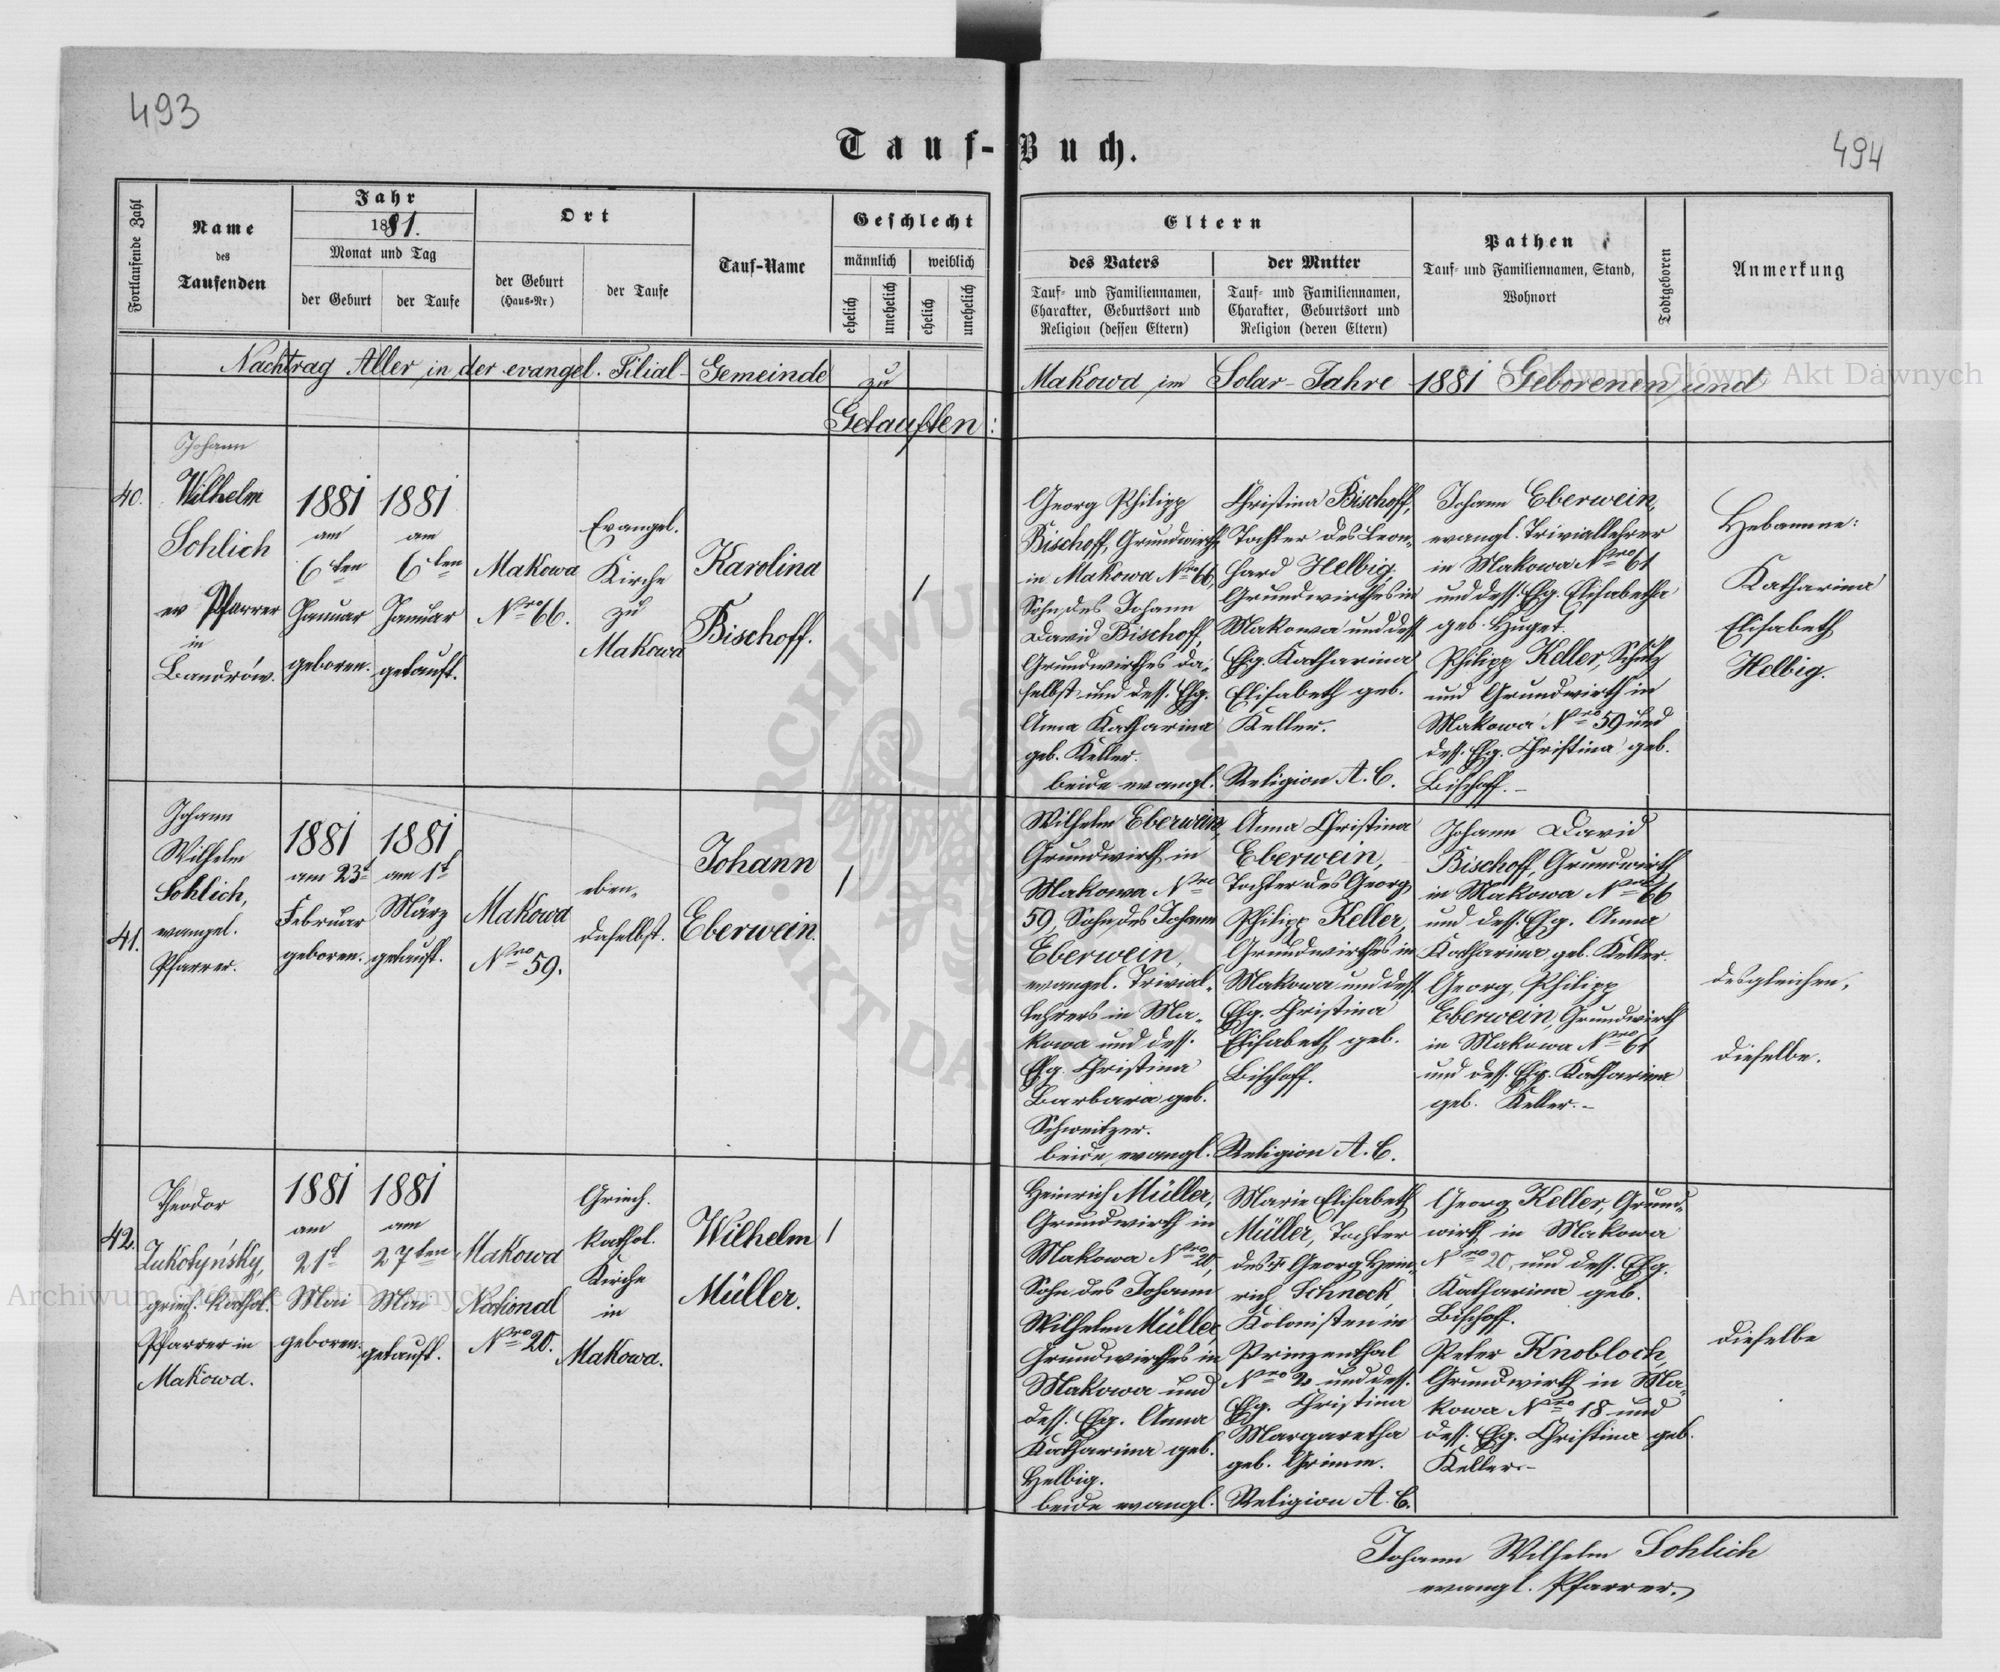 493
494
Tauf-Buch.
Fortlaufende Zahl
Name
des
Taufenden
Jahr
1881.
Monat und Tag
der Geburt
der Taufe
Ort
der Geburt
(Haus-Nr)
der Taufe
Tauf-Name
Geschlecht
männlich
weiblich
ehelich
unehelich
ehelich
unehelich
Eltern
des Vaters
Tauf- und Familiennamen,
Charakter, Geburtsort und
Religion (dessen Eltern)
der Mutter
Tauf- und Familiennamen,
Charakter, Geburtsort und
Religion (deren Eltern)
Pathen
Tauf- und Familiennamen, Stand,
Wohnort
Todtgeboren
Anmerkung
Nachtrag Aller in der evangel. Filial-Gemeinde zu Makowa im Solar-Jahre 1881 Geborenen und
Getauften:
40.
Johann
Wilhelm
Sohlich
ev Pfarrer
in
Bandrów.
1881
am
6ten
Januar
geboren.
1881
am
6ten
Januar
getauft.
Makowa
Nro 66.
Evangel.
Kirche
zu
Makowa
Karolina
Bischoff.
/
Georg Philipp
Bischoff, Grundwirth
in Makowa Nro 66,
Sohn des Johann
David Bischoff,
Grundwirthes da-
selbst und dess. Ehg.
Anna Katharina
geb. Keller.
beide evangl.
Christina Bischoff,
Tochter des Leon-
hard Helbig,
Grundwirthes in
Makowa und dess
Ehg. Katharina
Elisabeth geb.
Keller.
Religion A. C.
Johann Eberwein,
evangl. Triviallehrer
in Makowa Nro 61
und dess. Ehg. Elisabetha
geb. Huget.
Philipp Keller, Schulz
und Grundwirth in
Makowa Nro 59 und
dess. Ehg. Christina geb.
Bischoff.-
Hebamme:
Katharina
Elisabeth
Helbig.
41.
Johann
Wilhelm
Sohlich,
evangel.
Pfarrer.
1881
am 23t
Februar
geboren.
1881
am 1t
März
getauft.
Makowa
Nro 59.
eben-
daselbst.
Johann
Eberwein.
/
Wilhelm Eberwein
Grundwirth in
Makowa Nro
59, Sohn des Johann
Eberwein,
evangel. Trivial-
lehrers in Ma-
kowa und dess.
Ehg. Christina
Barbara geb.
Schweitzer.
beide, evangl.
Anna Christina
Eberwein,
Tochter des Georg
Philipp Keller,
Grundwirthes in
Makowa und dess.
Ehg. Christina
Elisabeth geb.
Bischoff.
Religion A. C.
Johann David
Bischoff, Grundwirth
in Makowa Nro 66
und dess. Ehg. Anna
Katharina geb. Keller.
Georg Philipp
Eberwein, Grundwirth
in Makowa Nro 61
und dess. Ehg. Katharina
geb. Keller.-
desgleichen,
dieselbe.
42.
Theodor
Lukotyńsky,
griech. kathol.
Pfarrer in
Makowa.
1881
am
21t
Mai
geboren.
1881
am
27ten
Mai
getauft.
Makowa
National
Nro 20.
Griech.
kathol.
Kirche
in
Makowa.
Wilhelm
Müller.
/
Heinrich Müller,
Grundwirth in
Makowa Nro 20,
Sohn des Johann
Wilhelm Müller
Grundwirthes in
Makowa und
dess. Ehg. Anna
Katharina geb.
Helbig.
beide evangl.
Marie Elisabeth
Müller, Tochter
des Georg Hein-
rich Schneck,
Kolonisten in
Prinzenthal
Nro 2 und dess.
Ehg. Christina
Margaretha
geb. Grimm.
Religion A. C.
Georg Keller, Grund-
wirth in Makowa
Nro 20, und dess. Ehg.
Katharina geb.
Bischoff.
Peter Knobloch,
Grundwirth in Ma-
kowa Nro 18 und
dess. Ehg. Christina geb.
Keller.-
dieselbe
Johann Wilhelm Sohlich
evangl. Pfarrer.
Archiwum Główne Akt Dawnych
Archiwum Główne Akt Dawnych